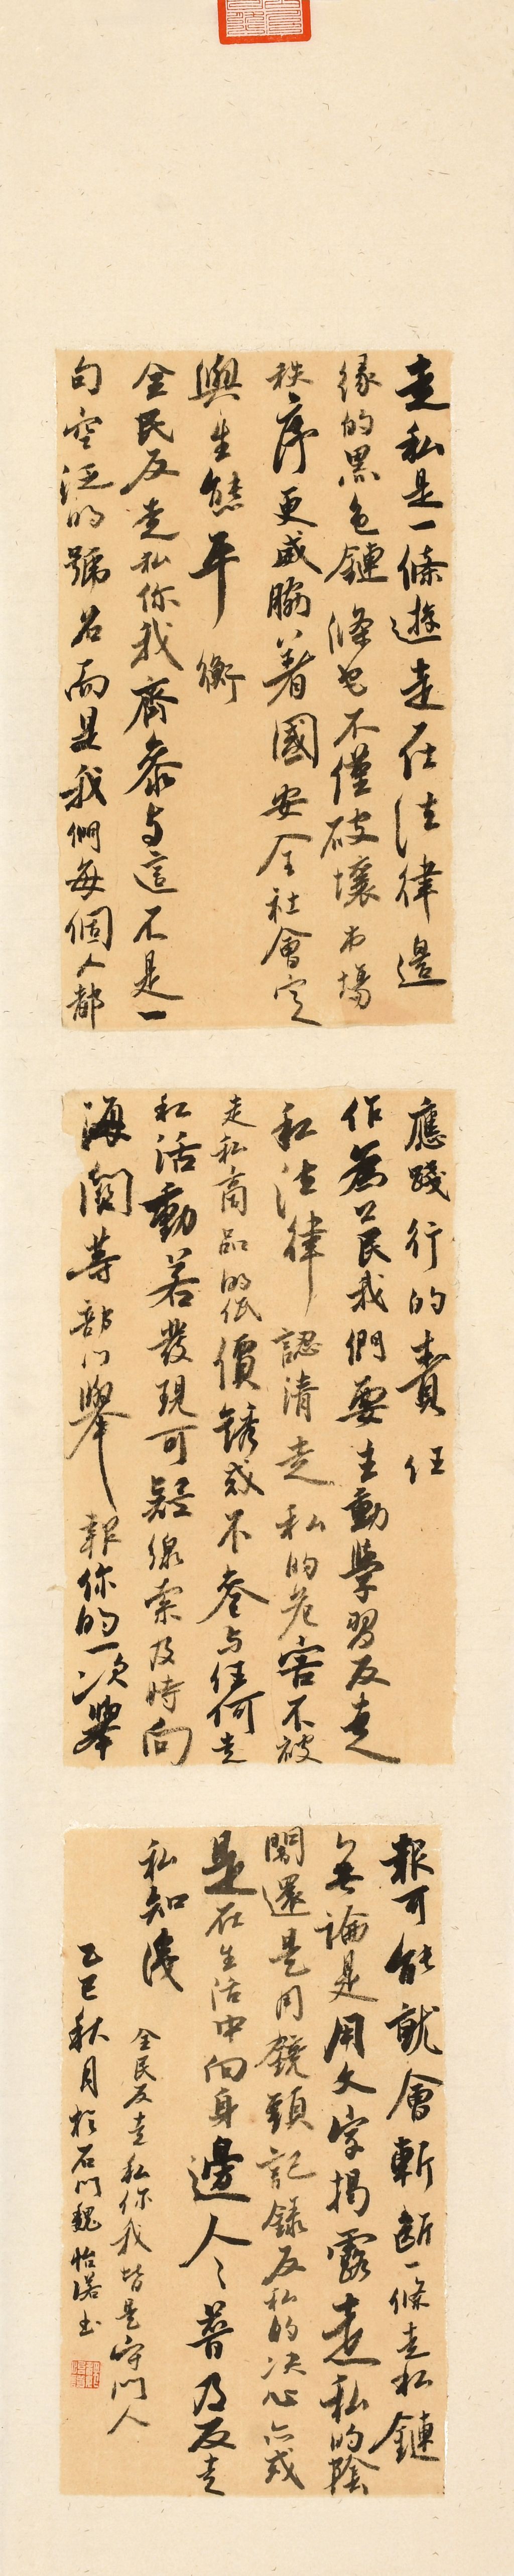 走私是一條遊走在法律邊
缘的黑色鏈條它不僅破壞市場
秩序更威脇着國安全社會定
與生態平衡
全民反走私你我齊参与這不是一
句空泛的號召而是我們每個人都
應踐行的責任
作為公民我們要主動學習反走
私法律認清走私的危害不被
走私商品的低價誘惑不参与任何走
私活動若發現可疑線索及時向
海關等部门舉報你的一次舉
報可能就會斬断一條走私鏈
無論是用文字揭露走私的陰
闇還是用鏡頭記錄反私的决心亦或
是在生活中向身邊人々普及反走
私知淺
全民反走私你我皆是守門人
乙巳秋月於石门魏怡諾书